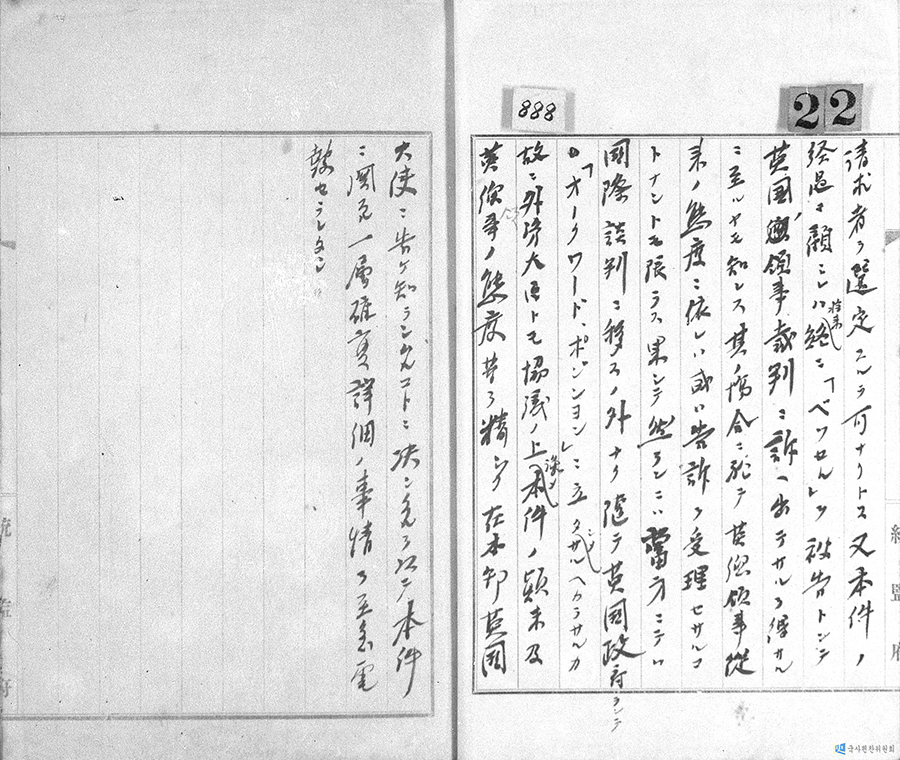 22
888
請求者ヲ選定スルヲ可ナリトス又本件ノ
経過ニ顧ミレハ将来終ニ「ベッセル」ヲ被告トシテ
英国総領事裁判ニ訴ヘ出テサルヲ得サル
ニ至ルヤモ知レス其ノ場合ニ於テ英総領事従
来ノ態度ニ依レハ或ハ告訴ヲ受理セサルコ
トナシトモ限ラス果シテ然ランニハ當方ニテハ
国際談判ニ移スノ外ナク随テ英国政府ヲシテ
「オークワード、ポジション」ニ立タシメサルヘカラサルカ
故ニ外務大臣トモ協議ノ上予メ本件ノ顛末及
英総領事ノ態度等ヲ精シク在本邦英国
大使ニ告ケ知ランムルコトニ決シタルヲ以テ本件
ニ関スル一層確実詳細ノ事情ヲ至急電
報セラレタシ
統監府
統監府
국사편찬위원회